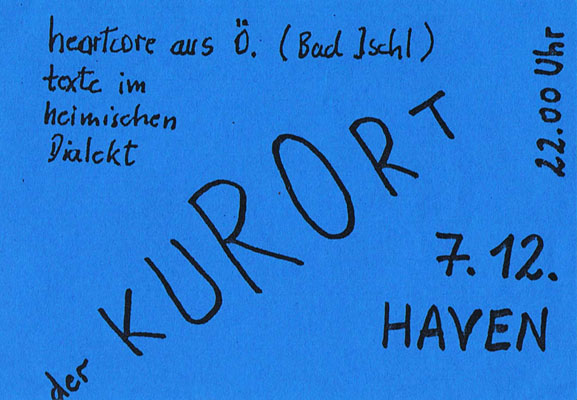 heartcore aus Ö. (Bad Ischl)
texte im
heimischen
Dialekt
22.00 Uhr
der KURORT
7.12.
HAVEN